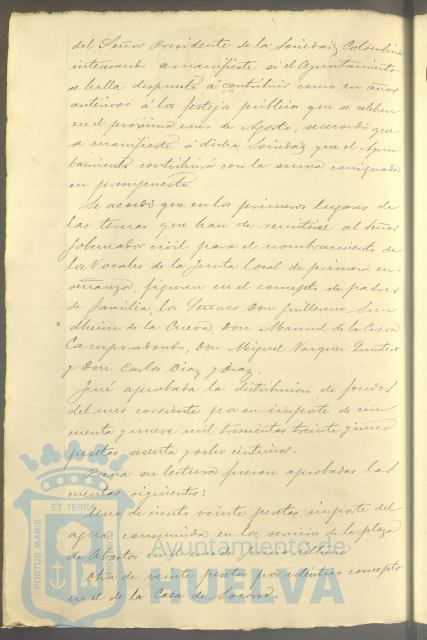 del Señor Presidente de la Sociedad Colombina
interesando se manifieste si el Ayuntamiento
se halla dispuesto á contribuir como en años
anteriores á los festejos públicos que se celebran
en el próximo mes de Agosto, se acordó que
se manifieste á dicha Sociedad que el Ayun
tamiento contribuirá con la suma consignada
en presupuesto.
Se acordó que en los primeros lugares de
las ternas que han de remitirse al Señor
Gobernador civil para el nombramiento de
los Vocales de la Junta local de primera en-
señanza, figuren en el concepto de padres
de familia, los Señores Don Guillermo Sun
dheim de la Cueva, Don Manuel de la Cueva
Camporedondo, Don Miguel Vazquez Quintero
y Don Carlos Diaz y Diaz.
Fué aprobada la distribucion de fondos
del mes corriente por su importe de cin
cuenta y nueve mil trescientas treinta y cinco
pesetas sesenta y ocho céntimos.
Previa su lectura fueron aprobadas las
cuentas siguientes:
Una de ciento veinte pesetas importe del
agua consumida en los servicios de la plaza
de Abastos en el mes de
Otra de veinte pesetas por idéntico concepto
en el de la Casa de Socorro.
PORTUS MARIS
ET TERRAE
Ayuntamiento de
HUELVA